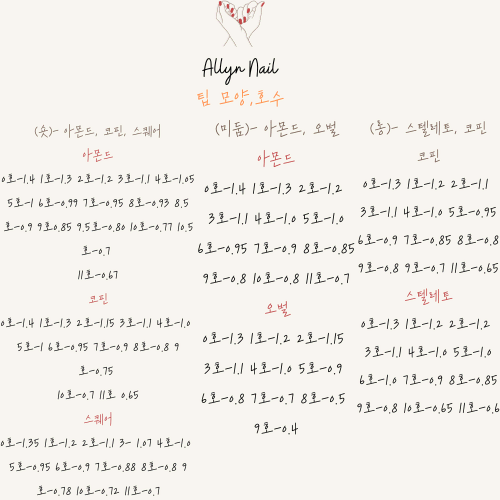 Allyn Nail
팁 모양,호수
(숏)- 아몬드, 코핀, 스퀘어
아몬드
0호-1.4 1호-1.3 2호-1.2 3호-1.1 4호-1.05
5호-1 6호-0.99 7호-0.95 8호-0.93 8.5
호-0.9 9호0.85 9.5호-0.80 10호-0.77 10.5
호-0.7
11호-0.67
코핀
0호-1.4 1호-1.3 2호-1.15 3호-1.1 4호-1.0
5호-1 6호-0.95 7호-0.9 8호-0.8 9
호-0.75
10호-0.7 11호 0.65
스퀘어
0호-1.35 1호-1.2 2호-1.1 3- 1.07 4호-1.0
5호-0.95 6호-0.9 7호-0.88 8호-0.8 9
호-0.78 10호-0.72 11호-0.7
(미듐)- 아몬드, 오벌
아몬드
0호-1.4 1호-1.3 2호-1.2
3호-1.1 4호-1.0 5호-1.0
6호-0.95 7호-0.9 8호-0.85
9호-0.8 10호-0.8 11호-0.7
오벌
0호-1.3 1호-1.2 2호-1.15
3호-1.1 4호-1.0 5호-0.9
6호-0.8 7호-0.7 8호-0.5
9호-0.4
(롱)- 스텔레토, 코핀
코핀
0호-1.3 1호-1.2 2호-1.1
3호-1.1 4호-1.0 5호-0.95
6호-0.9 7호-0.85 8호-0.8
9호-0.8 9호-0.7 11호-0.65
스텔레토
0호-1.3 1호-1.2 2호-1.2
3호-1.1 4호-1.0 5호-1.0
6호-1.0 7호-0.9 8호-0.85
9호-0.8 10호-0.65 11호-0.6